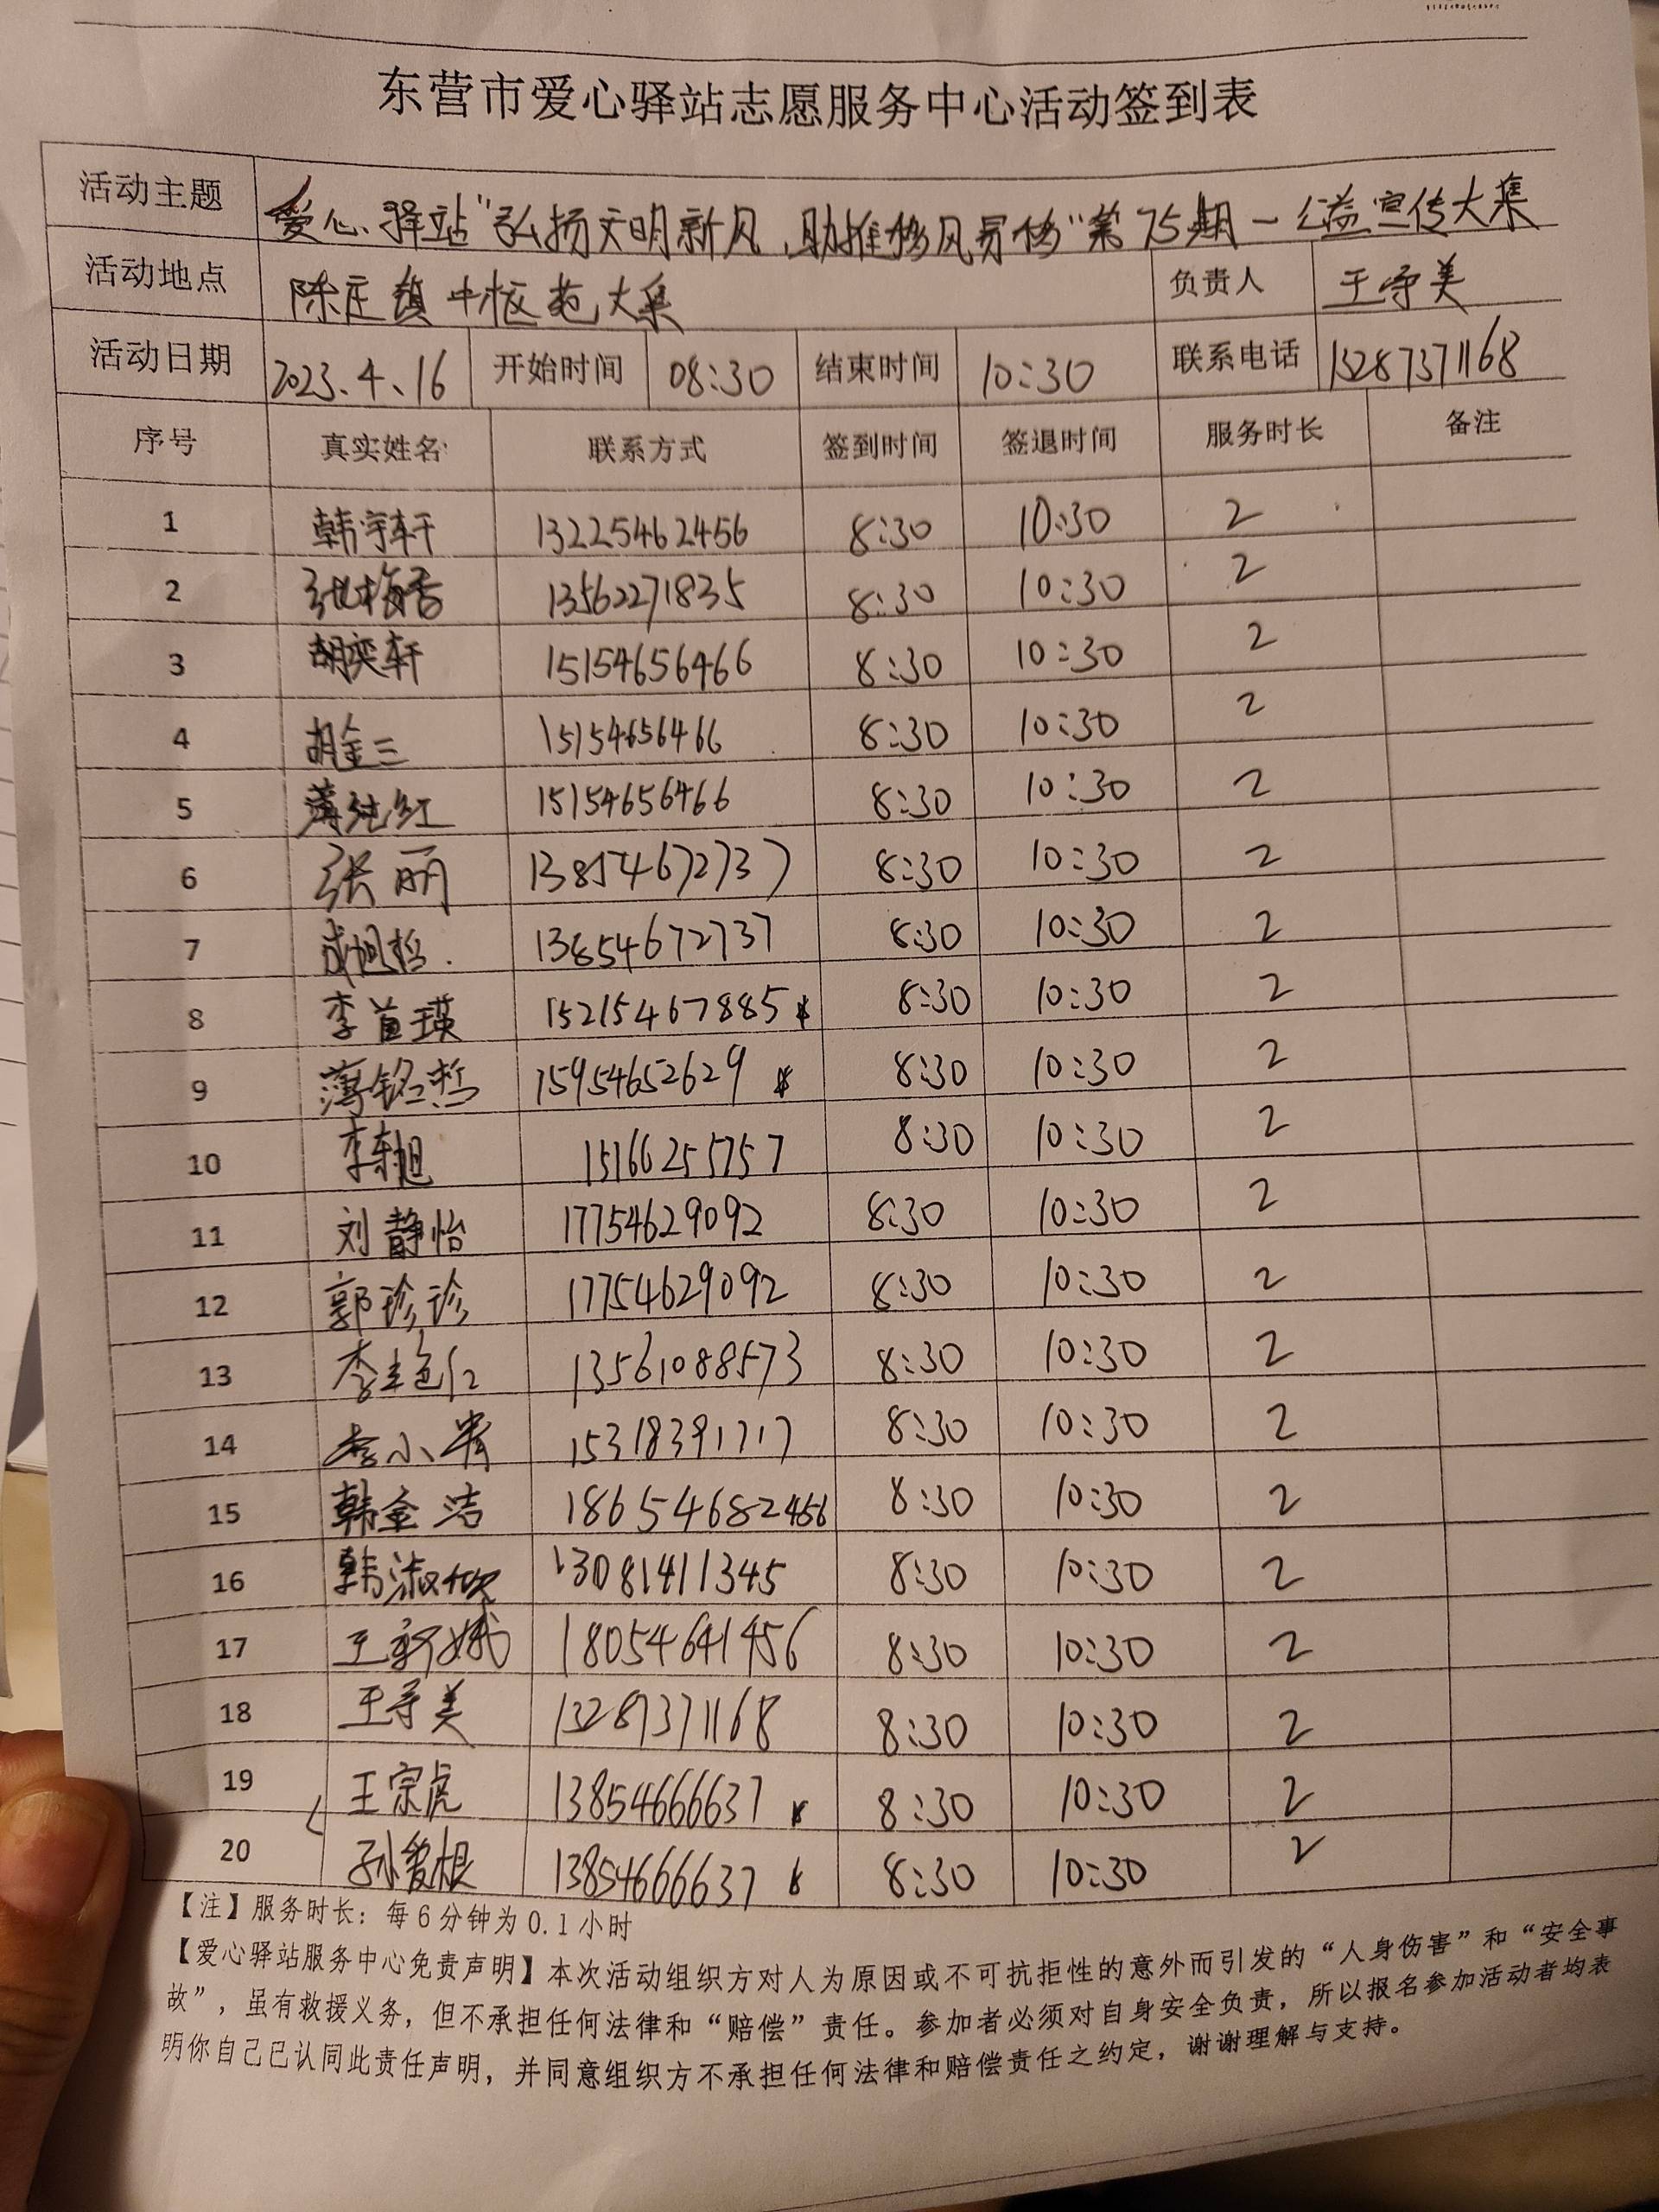 东营市爱心驿站志愿服务中心活动签到表
活动主题 爱心驿站“弘扬文明新风,助推移风易俗”第75期—公益宣传大集
活动地点 陈庄镇中枢苑大集 负责人 王学美
活动日期 2023.4.16 开始时间 08:30 结束时间 10:30 联系电话 13287371168
序号 真实姓名 联系方式 签到时间 签退时间 服务时长 备注
1 韩宇轩 13225462456 8:30 10:30 2
2 张梅香 13562271835 8:30 10:30 2
3 胡奕轩 15154656466 8:30 10:30 2
4 胡金三 15154656466 8:30 10:30 2
5 薄纯红 15154656466 8:30 10:30 2
6 张丽 13854672737 8:30 10:30 2
7 成旭哲 13854672737 8:30 10:30 2
8 李首瑛 15215467885 8:30 10:30 2
9 薄铭哲 15954652629 8:30 10:30 2
10 李东旭 15166255757 8:30 10:30 2
11 刘静怡 17754629092 8:30 10:30 2
12 郭珍珍 17754629092 8:30 10:30 2
13 李艳红 13561088573 8:30 10:30 2
14 李小 15318391717 8:30 10:30 2
15 韩金洁 18654682456 8:30 10:30 2
16 韩淑 13081411345 8:30 10:30 2
17 王新娥 18054641456 8:30 10:30 2
18 王学美 13287371168 8:30 10:30 2
19 王宗虎 13854666637 8:30 10:30 2
20 孙爱根 13854666637 8:30 10:30 2
【注】服务时长：每6分钟为0.1小时
【爱心驿站服务中心免责声明】本次活动组织方对人为原因或不可抗拒性的意外而引发的“人身伤害”和“安全事
故”，虽有救援义务，但不承担任何法律和“赔偿”责任。参加者必须对自身安全负责，所以报名参加活动者均表
明你自己已认同此责任声明，并同意组织方不承担任何法律和赔偿责任之约定，谢谢理解与支持。